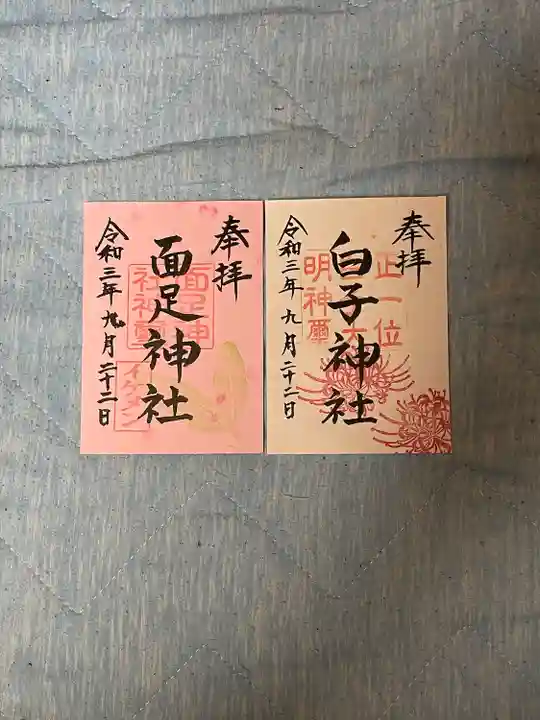 奉拝
白子神社
令和三年九月二十二日
正一位
明神爾
奉拝
面足神社
令和三年九月二十二日
面足神
社神璽
イケメン